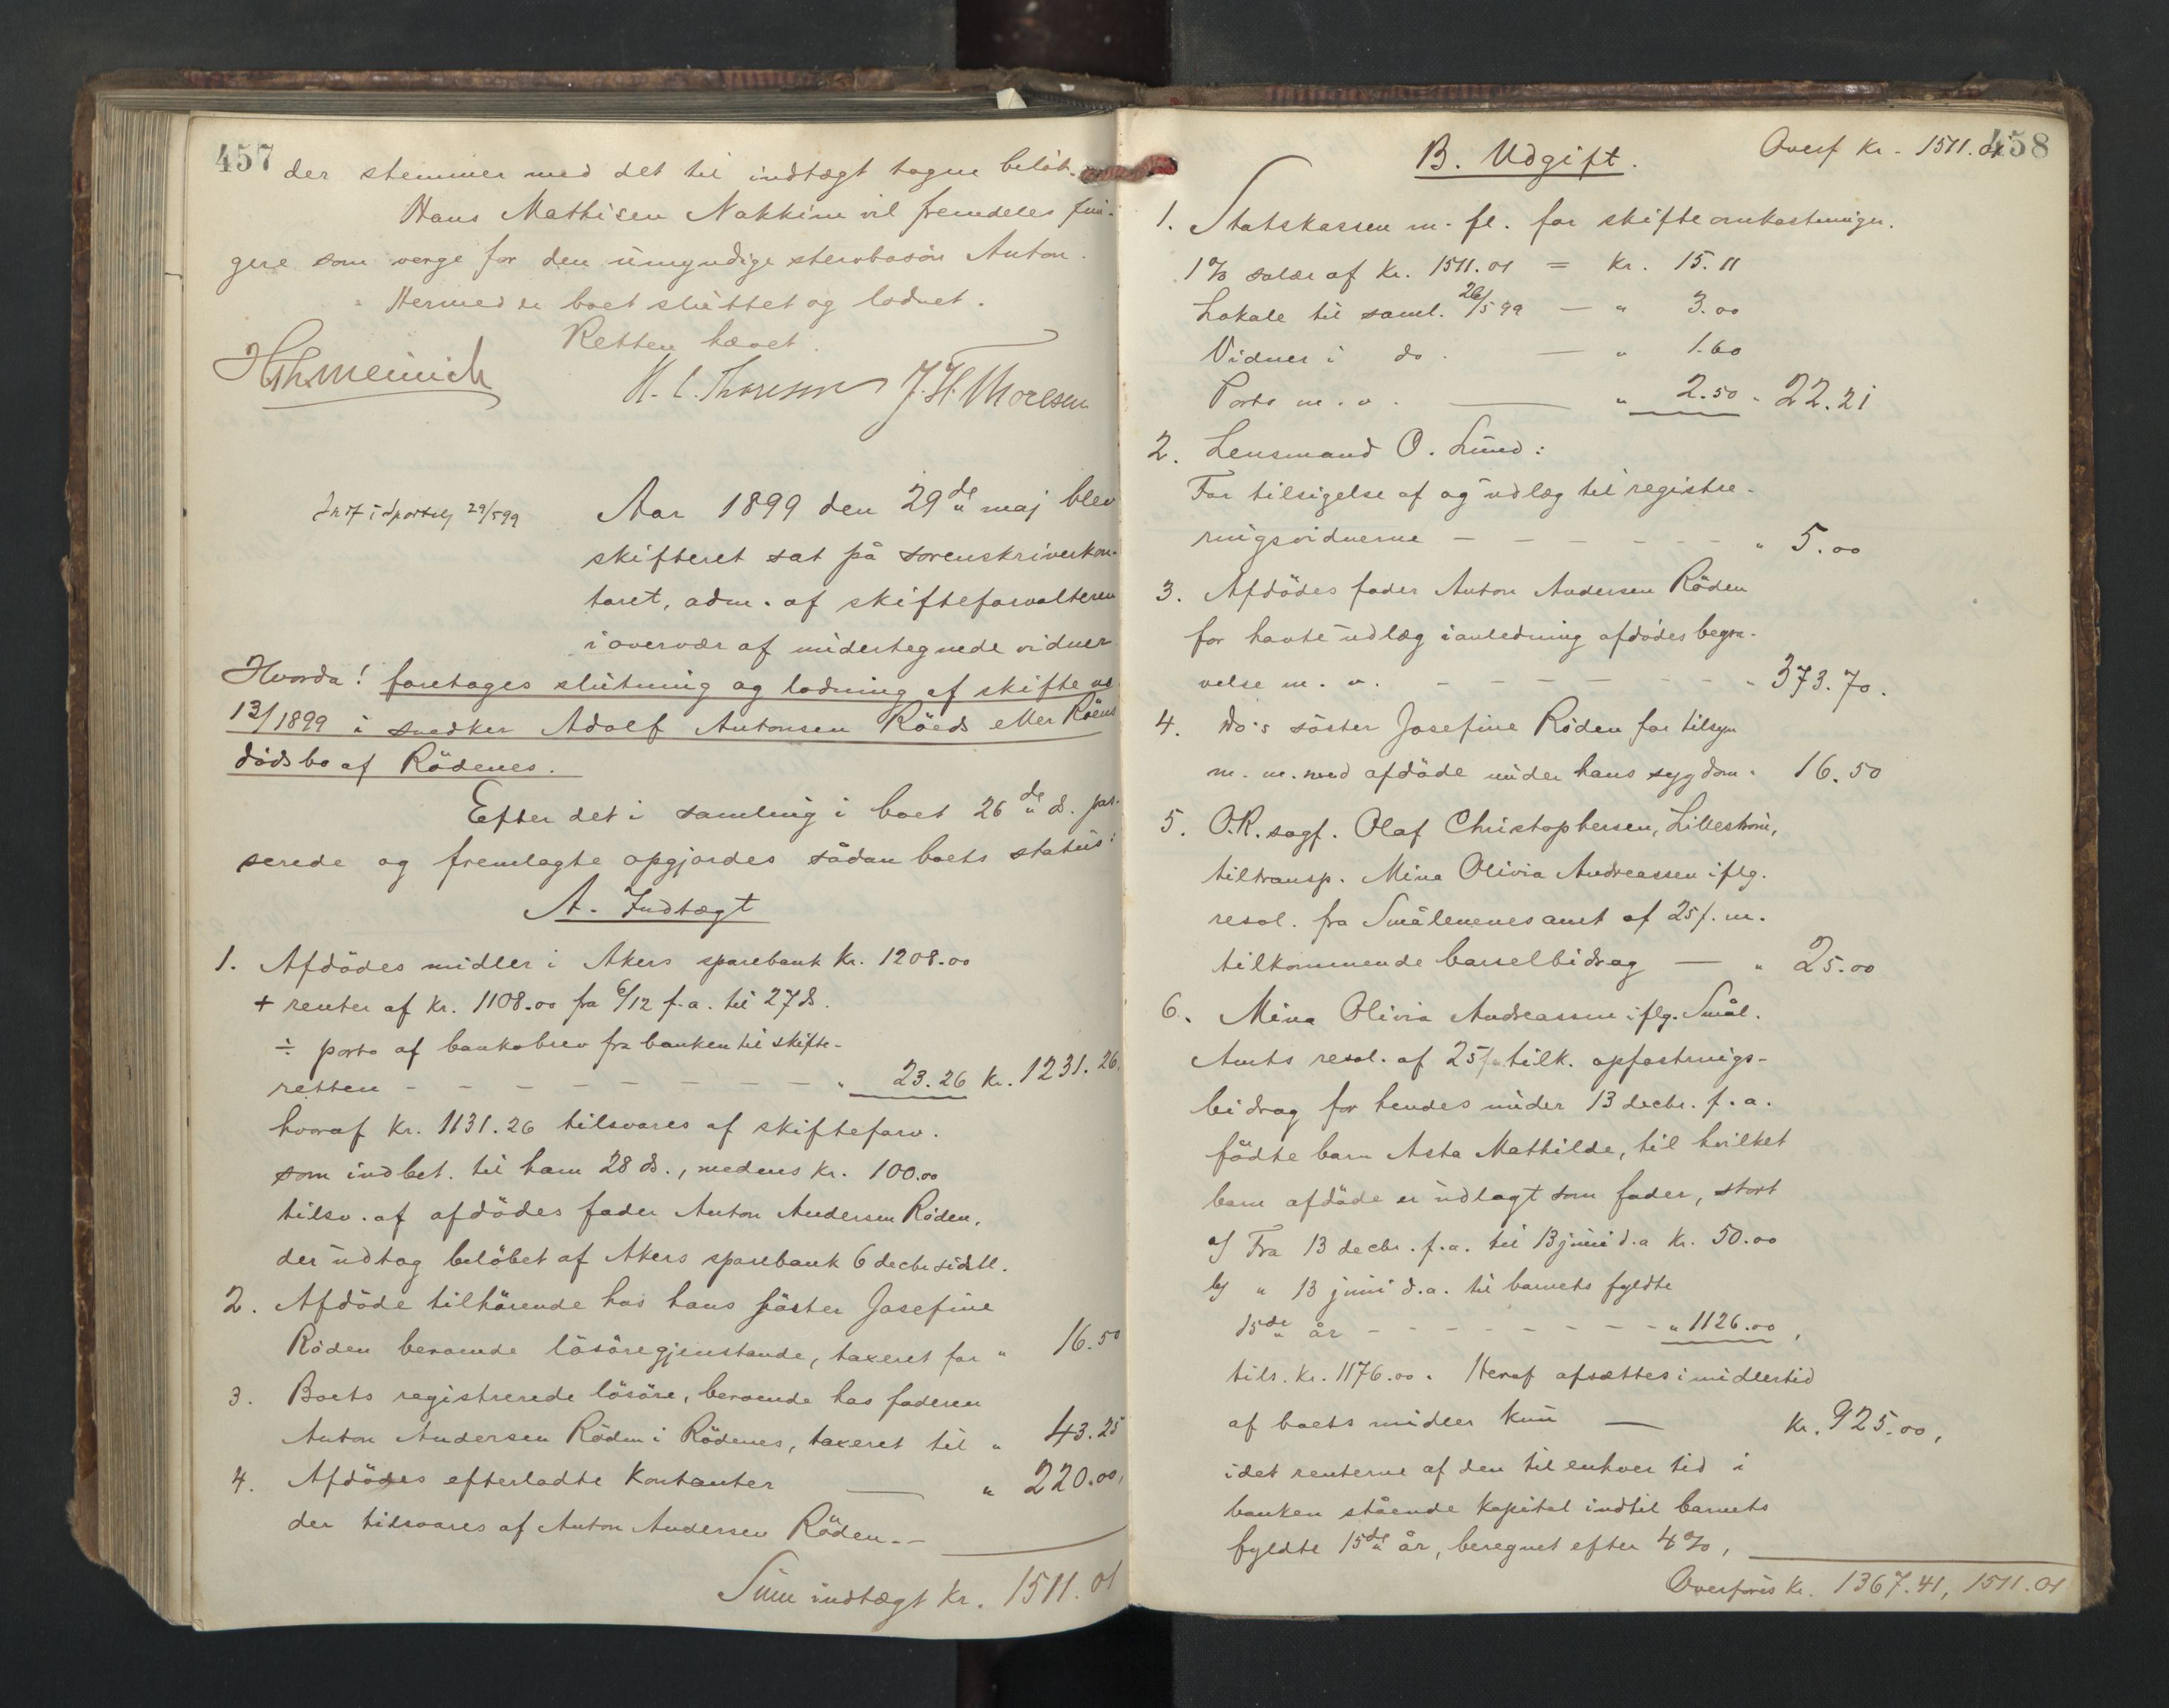 457
der stemmer med det til indtægt tagne beløb.
Hans Mathisen Nakkim vil fremdeles fun-
gere som verge for den umyndige stervbosøn Anton.
Hermed er boet sluttet og lodnet.
Retten hævet.
H. C. Thoresen J. H. Thoresen
Indf i sportelj 29/5 99
Aar 1899 den 29de maj blev
skifteret sat på sorenskriverkon-
toret, adm. af skifteforvalteren
i overvær af undertegnede vidner
Hvorda! foretoges slutning og lodning af skifte no
13/1899 i snedker Adolf Antonsen Röeds eller Röens
dödsbo af Rödenes.
Efter det i samling i boet 26de ds. pas-
serede og fremlagte opgjordes sådan boets status:
A. Indtægt
1. Afdödes midler i Akers sparebank kr. 1208.00
+ renter af kr. 1108.00 fra 6/12 f.a. til 27 ds.
÷ porto af bankobrev fra banken til skifte-
retten - - - - - - - - " 23.26 kr. 1231.26,
hvoraf kr. 1131.26 tilsvares af skifteforv.
som indbet. til ham 28 ds., medens kr. 100.00
tilsv. af afdödes fader Anton Andersen Röden,
der udtog belöbet af Akers sparebank 6 decbr sidstl.
2. Afdöde tilhörende hos hans söster Josefine
Röden beroende lösöregjenstande, taxeret for " 16.50
3. Boets registrerede lösöre, beroende hos faderen
Anton Andersen Röden i Rödenes, taxeret til " 43.25
4. Afdödes efterladte kontanter — " 220.00,
der tilsvares af Anton Andersen Röden.—
Sum indtægt kr. 1511.01
458
B. Udgift. Overf kr. 1511.01
1. Statskassen m. fl. for skifteomkostninger.
1 % salær af kr. 1511.01 = kr. 15.11
Lokale til saml. 26/5 99 — " 3.00
Vidner i do. — " 1.60
Porto m. v. — " 2.50 " 22.21
2. Lensmand O. Lund:
For tilsigelse af og udlæg til registre-
ringsvidnerne - - - - - - " 5.00
3. Afdödes fader Anton Andersen Röden
for havte udlæg i anledning afdödes begra-
velse m. v. - - - - - - - " 373.70.
4. Do's söster Josefine Röden for tilsyn
m. m. med afdöde under hans sygdom " 16.50
5. O.R. sagf. Olaf Christophersen, Lilleström,
tiltransp. Mina Olivia Andreassen iflg.
resol. fra Smålenenes amt af 25 f. m.
tilkommende barselbidrag — " 25.00
6. Mina Olivia Andreassen iflg. Smål.
Amts resol. af 25/ tilk. opfostrings-
bidrag for hendes under 13 decbr. f. a.
födte barn Asta Mathilde, til hvilket
barn afdöde er udlagt som fader, stort
a/ Fra 13 decbr. f.a. til 13 juni d.a kr. 50.00
b/ " 13 juni d.a. til barnets fyldte
15de år - - - - - - - - " 1126.00,
tils. kr. 1176.00. Heraf afsættes imidlertid
af boets midler kun — kr. 925.00,
idet renterne af den til enhver tid i
banken stående kapital indtil barnets
fyldte 15de år, beregnet efter 4 %,
Overföres kr. 1367.41, 1511.01